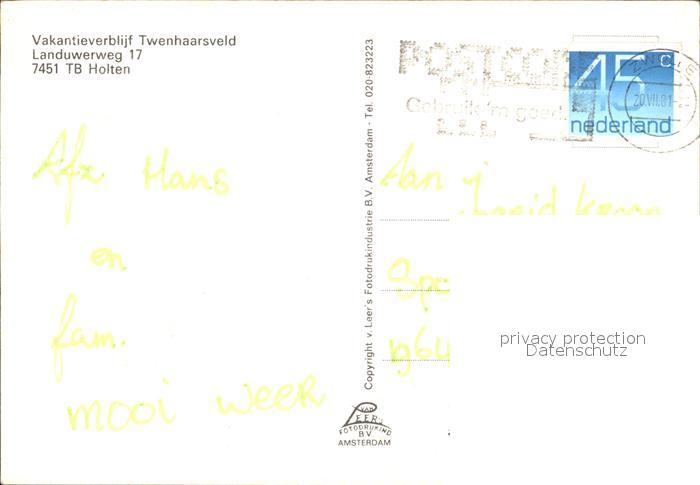 Vakantieverblijf Twenhaarsveld
Landuwerweg 17
7451 TB Holten
Afz Hans
en
fam.
mooi weer
Copyright v. Leer's Fotodrukindustrie B.V. Amsterdam - Tel. 020-823223
VAN
LEER's
FOTODRUKIND
BV
AMSTERDAM
POSTCODE
Gebruik 'm goed.
45 c
nederland
20.VII.81
Aan
privacy protection
Datenschutz